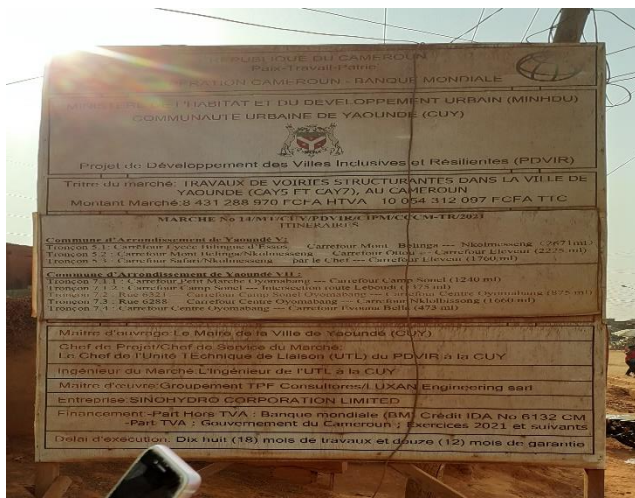 REPUBLIQUE DU CAMEROUN
Paix-Travail-Patrie
CAMEROUN - BANQUE MONDIALE
MINISTERE DE L'HABITAT ET DU DEVELOPPEMENT URBAIN (MINHDU)
COMMUNAUTE URBAINE DE YAOUNDE (CUY)
Projet de Développement des Villes Inclusives et Résilientes (PDVIR)
Titre du marché: TRAVAUX DE VOIRIES STRUCTURANTES DANS LA VILLE DE
YAOUNDE (CAY5 ET CAY7), AU CAMEROUN
Montant Marché: 8 431 288 970 FCFA HTVA 10 054 312 097 FCFA TTC
MARCHE No 14/MT/CUY/PDVIR/CIPM/CCCM-TR/2021
ITINERAIRES
Commune d'Arrondissement de Yaoundé V:
Tronçon 5.1 : Carrefour Lycée Bilingue d'Essos Carrefour Mont Belinga --- Nkolmesseng (2671ml)
Tronçon 5.2 : Carrefour Mont Belinga/Nkolmesseng Carrefour --- Carrefour Eleveur (2225 ml)
Tronçon 5.3 : Carrefour Safari/Nkolmesseng par le Chef --- Carrefour Eleveur (1760ml)
Commune d'Arrondissement de Yaoundé VII :
Tronçon 7.1.1 : Carrefour Petit Marché Oyomabang --- Carrefour Camp Sonel (1240 ml)
Tronçon 7.1.2 : Carrefour Camp Sonel --- Intersection route Leboudi
Tronçon 7.2 : Rue Carrefour Camp Sonel Oyomabang --- Carrefour Centre Oyomabang (675 ml)
Tronçon 7.3 : Rue 6288 Carrefour Centre Oyomabang --- Carrefour Nkolbissong (1660 ml)
Tronçon 7.4 : Carrefour Centre Oyomabang --- Carrefour Evouna Belle (475 ml)
Maitre d'ouvrage: Le Maire de la Ville de Yaoundé (CUY)
Chef de Projet/Chef de Service du Marché:
Le Chef de l'Unité Technique de Liaison (UTL) du PDVIR à la CUY
Ingénieur du Marché: L'Ingénieur de l'UTL à la CUY
Maitre d'œuvre: Groupement TPF Consultores/LUXAN Engineering sarl
Entreprise: SINOHYDRO CORPORATION LIMITED
Financement:-Part Hors TVA : Banque mondiale (BM) Crédit IDA No 6132 CM
-Part TVA : Gouvernement du Cameroun ; Exercices 2021 et suivants
Délai d'exécution: Dix huit (18) mois de travaux et douze (12) mois de garantie